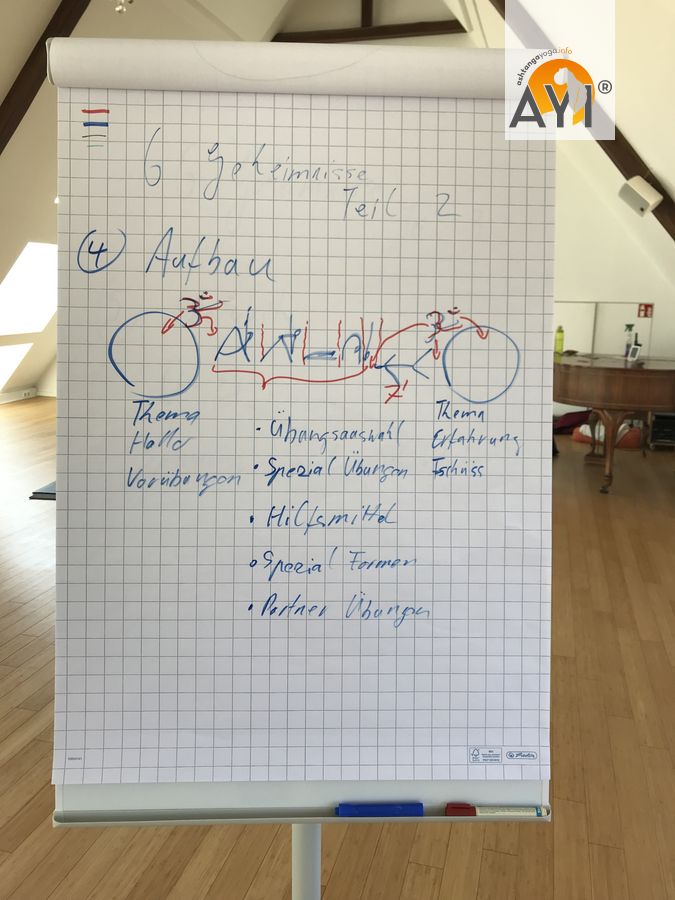 ashtangayoga.info
AYI®
6 Geheimnisse
Teil 2
④ Aufbau
3'
3'
7'
Thema
Hallo
Vorübungen
• Übungsauswahl
• Spezial Übungen
• Hilfsmittel
• Spezial Formen
• Partner Übungen
Thema
Erfahrung
Tschüss